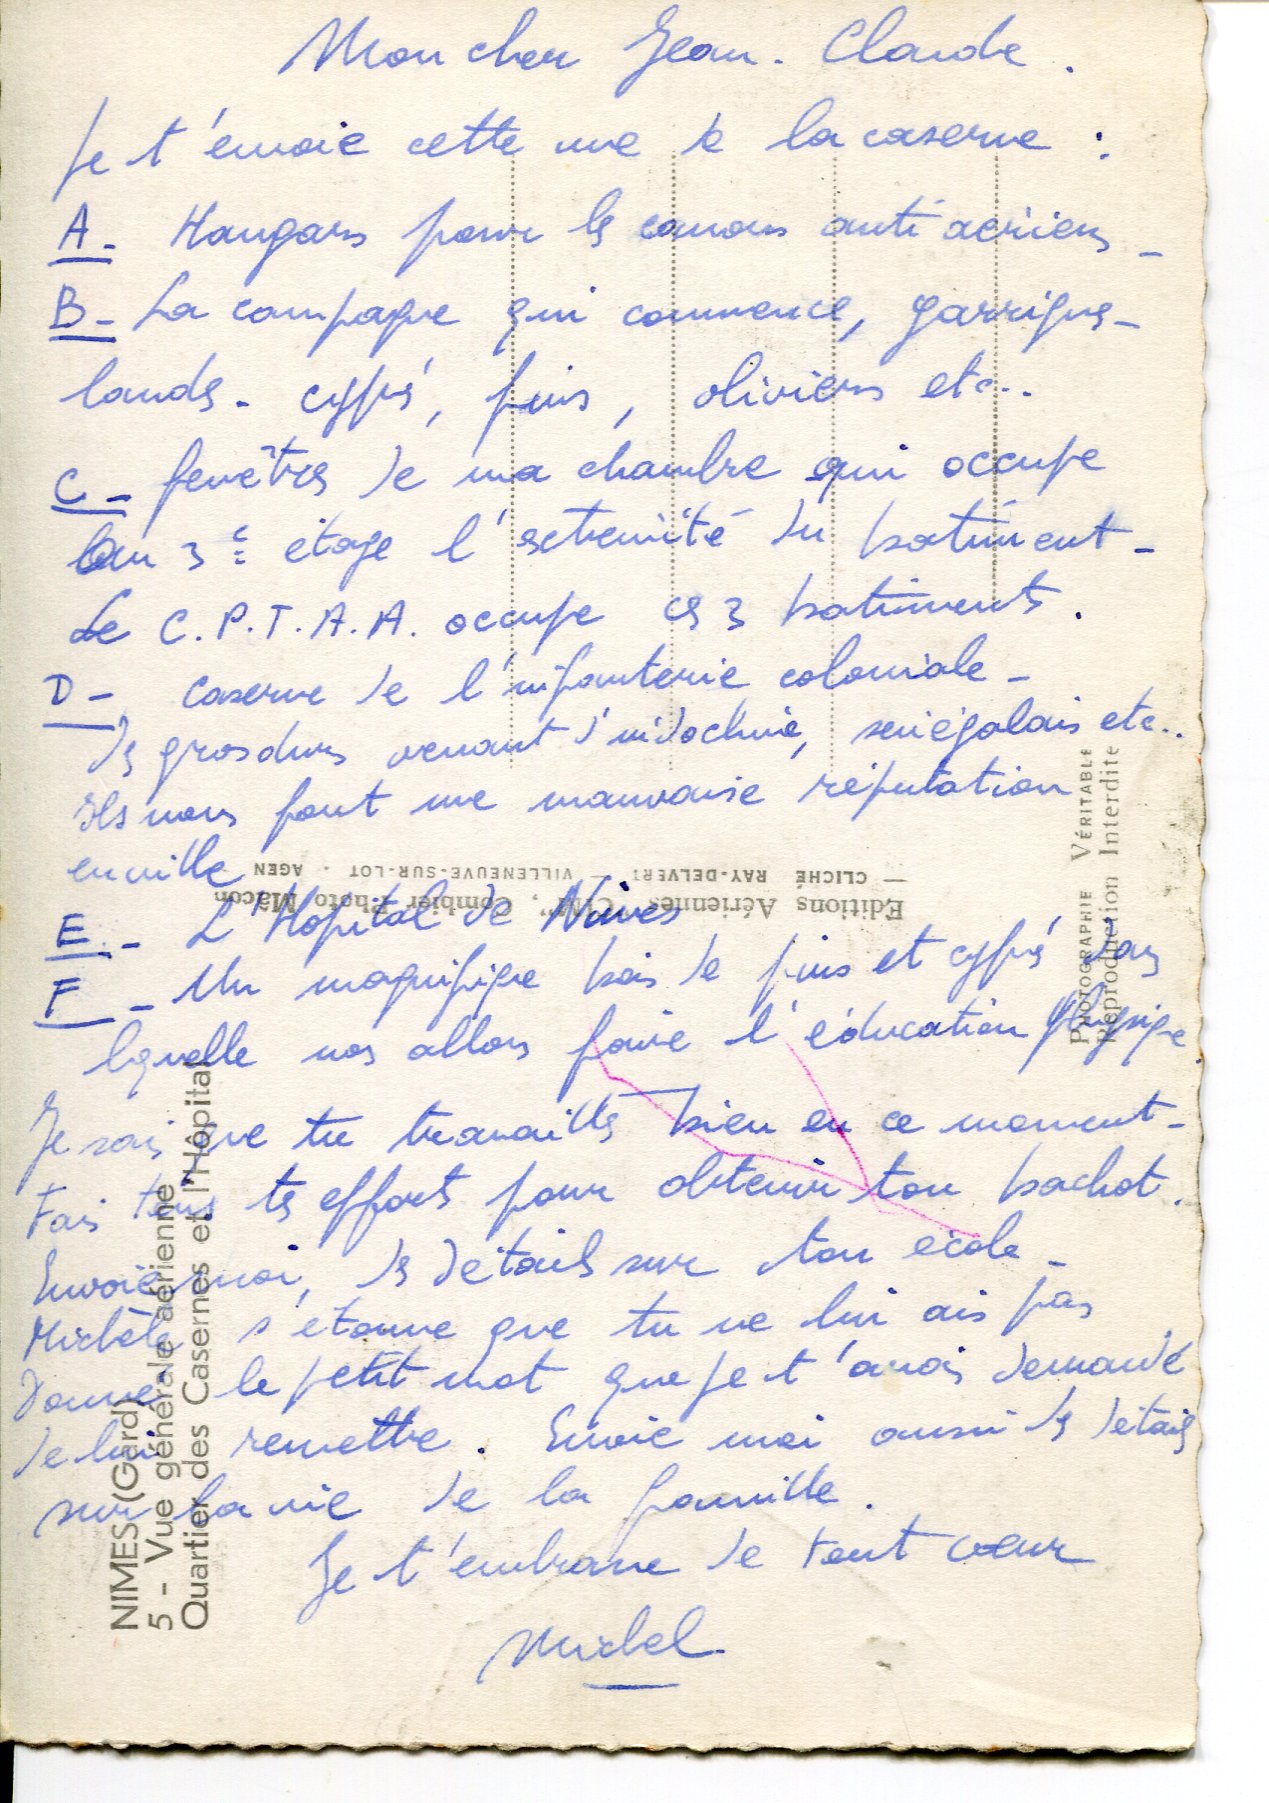 Mon cher Jean-Claude.
Je t'envoie cette vue de la caserne :
A - Hangars pour les canons anti aériens -
B - La campagne qui commence, garrigues -
landes - cyprès, pins, oliviers etc..
C - fenêtres de ma chambre qui occupe
au 3e étage l'extremité du batiment -
Le C.P.T.A.A. occupe ces 3 batiments.
D - Caserne de l'infanterie coloniale -
des gros durs venant d'indochine, sénégalais etc..
ils nous font une mauvaise réputation
en ville
E - L'Hopital de Nimes
F - Un magnifique bois de pins et cyprés dans
lequelle nos allons faire l'éducation physique.
Je sais que tu travailles bien en ce moment -
Fais tous tes efforts pour obtenir ton bachot.
Envoie moi, des détails sur ton école -
Michèle s'étonne que tu ne lui ais pas
donné le petit mot que je t'avais demandé
de lui remettre. Envoie moi aussi des détails
sur la vie de la famille.
Je t'embrasse de tout cœur
Michel
NIMES (Gard)
5 - Vue générale aérienne
Quartier des Casernes et l'Hôpital
Editions Aériennes "CIM", Combier Photo Mâcon
— CLICHÉ RAY-DELVERT — VILLENEUVE-SUR-LOT - AGEN
PHOTOGRAPHIE VÉRITABLE
Reproduction Interdite